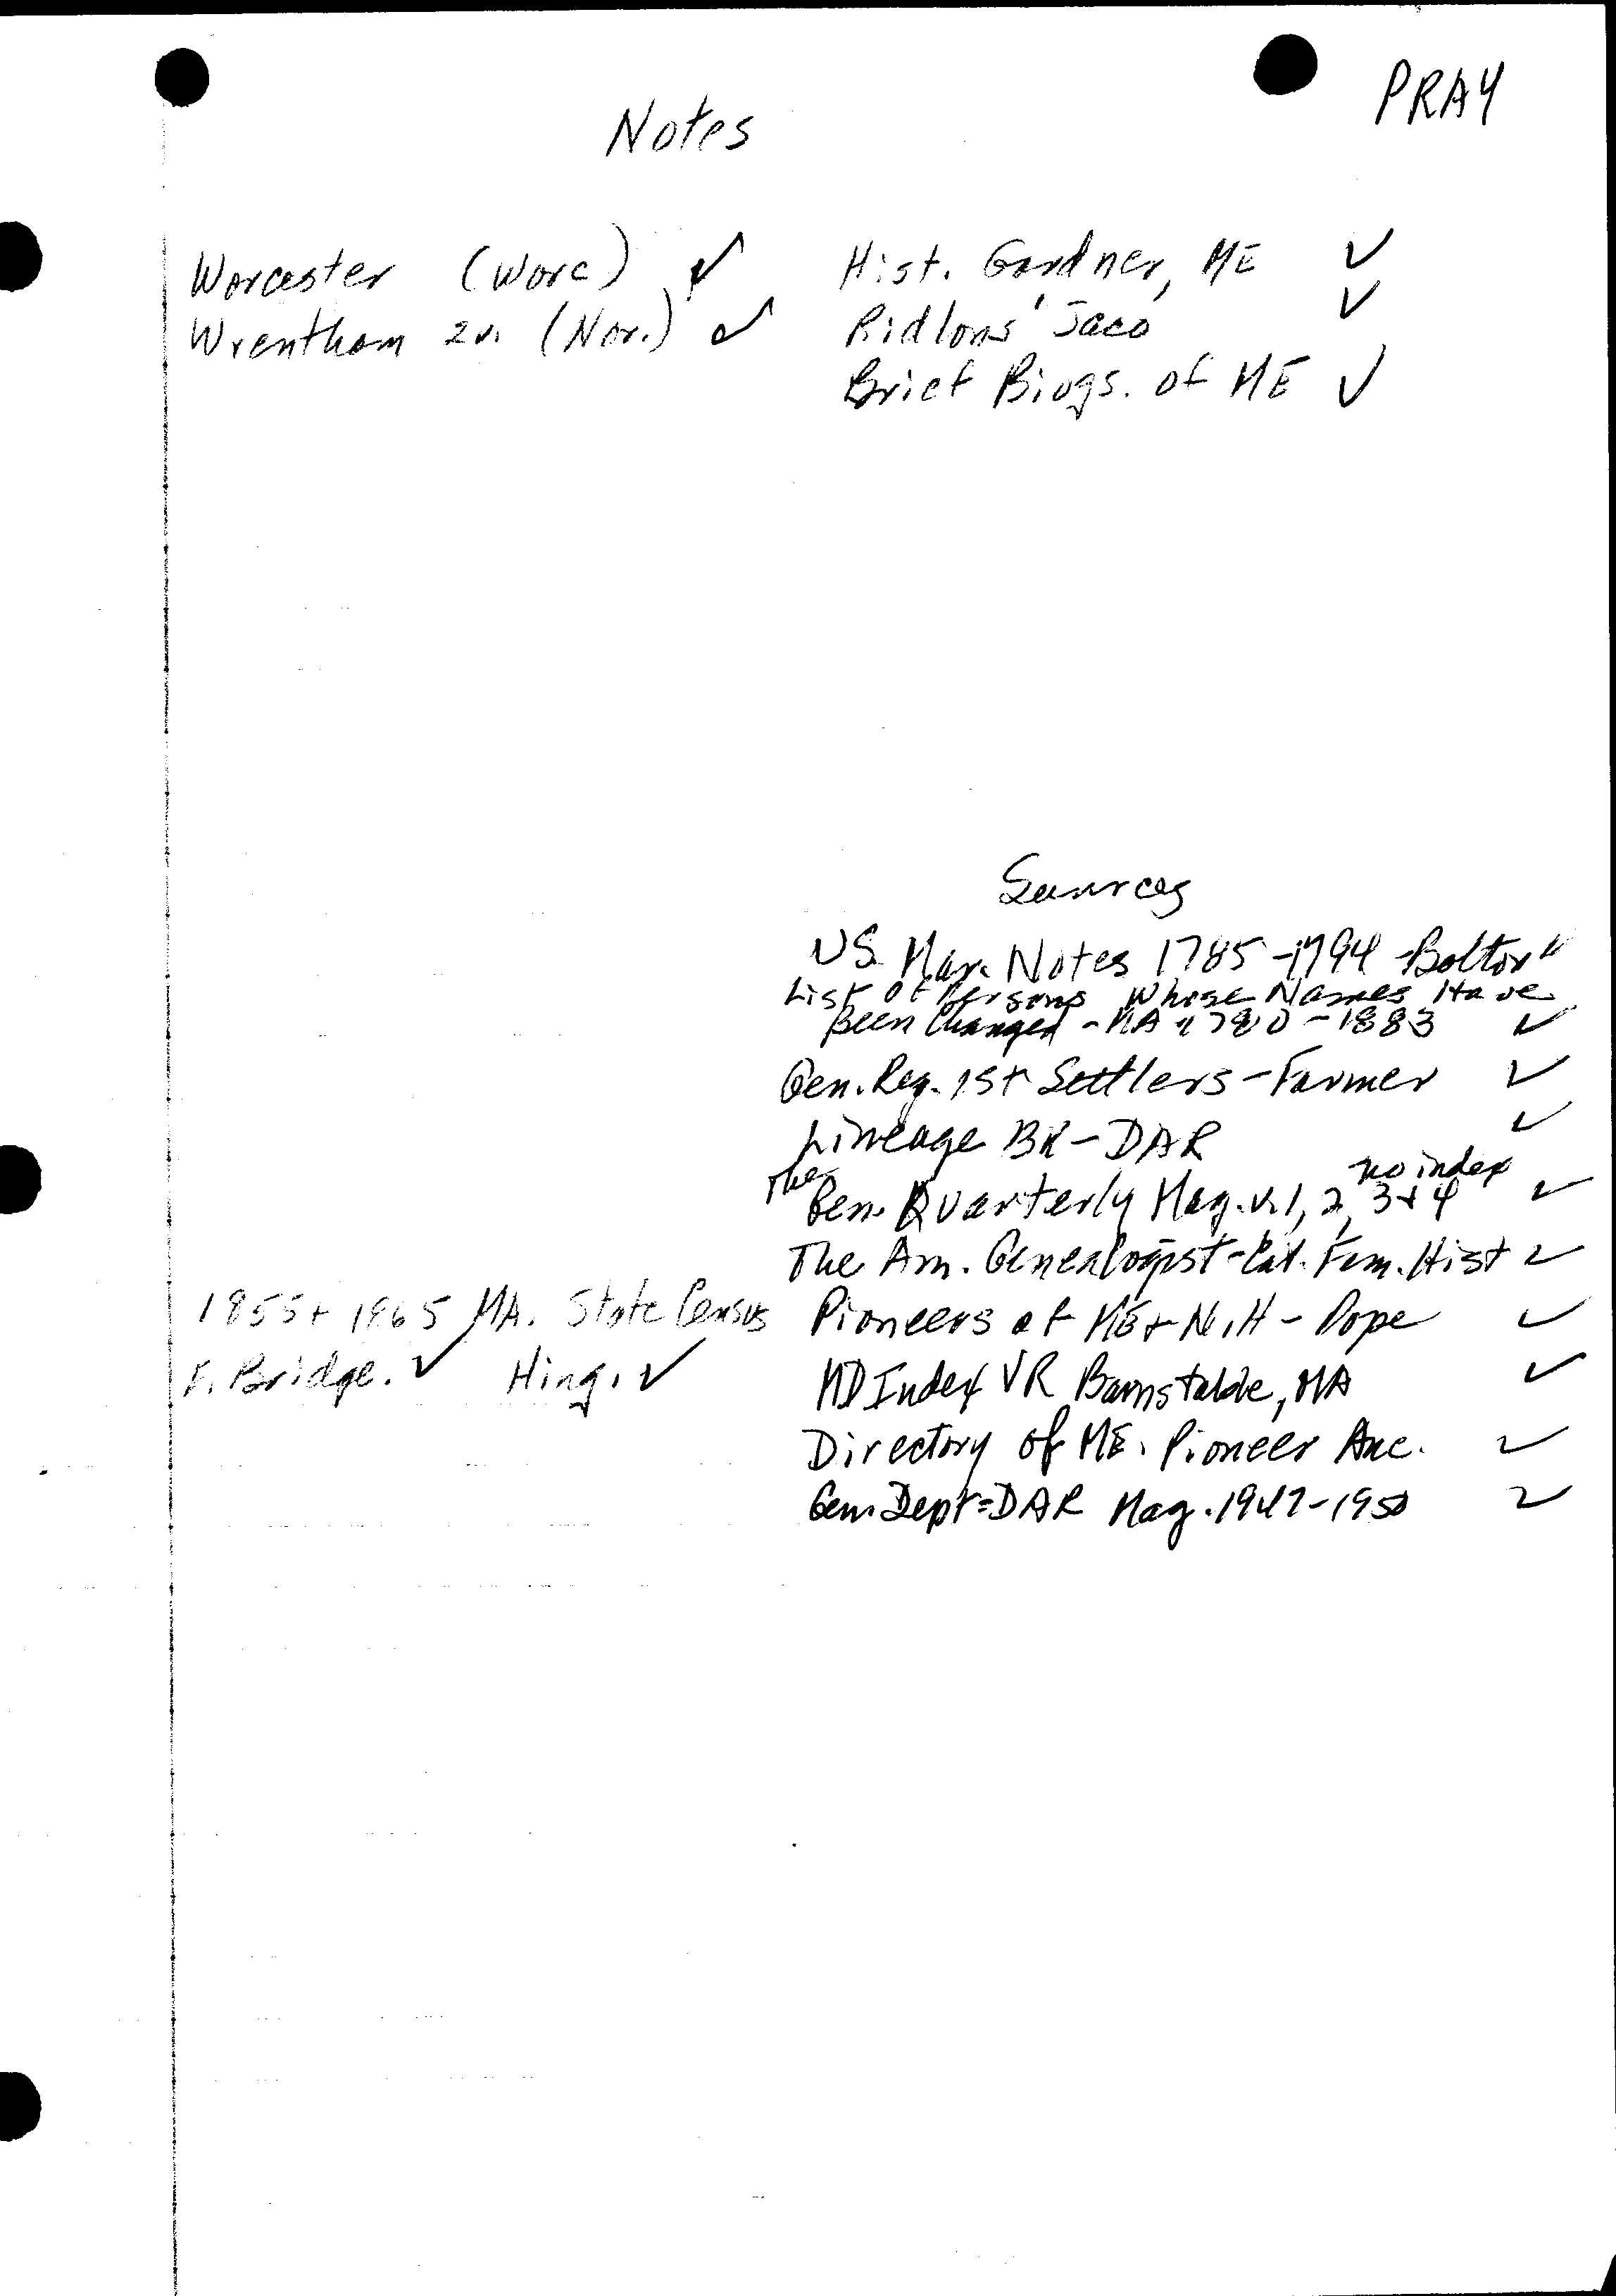 PRAY
Notes
Worcester (Worc) ✓
Wrentham 2v. (Nor.) ✓
Hist. Gardner, ME ✓
Ridlons' Saco ✓
Brief Biogs. of ME ✓
Sources
US Mar. Notes 1785-1794 - Bolton "
List of Persons Whose Names Have
Been Changed - MA 1780-1883 ✓
Gen. Reg. 1st Settlers - Farmer ✓
Lineage BK - DAR ✓
no index
The Gen. Quarterly Mag. v. 1, 2, 3+4 ✓
The Am. Genealogist - Cat. Fam. Hist ✓
Pioneers of ME + N.H - Pope ✓
MD Index VR Barnstable, MA ✓
Directory of ME. Pioneer Anc. ✓
Gen. Dept = DAR Mag. 1947-1950 ✓
1855+ 1865 MA. State Census
Bridge. ✓ Hing. ✓